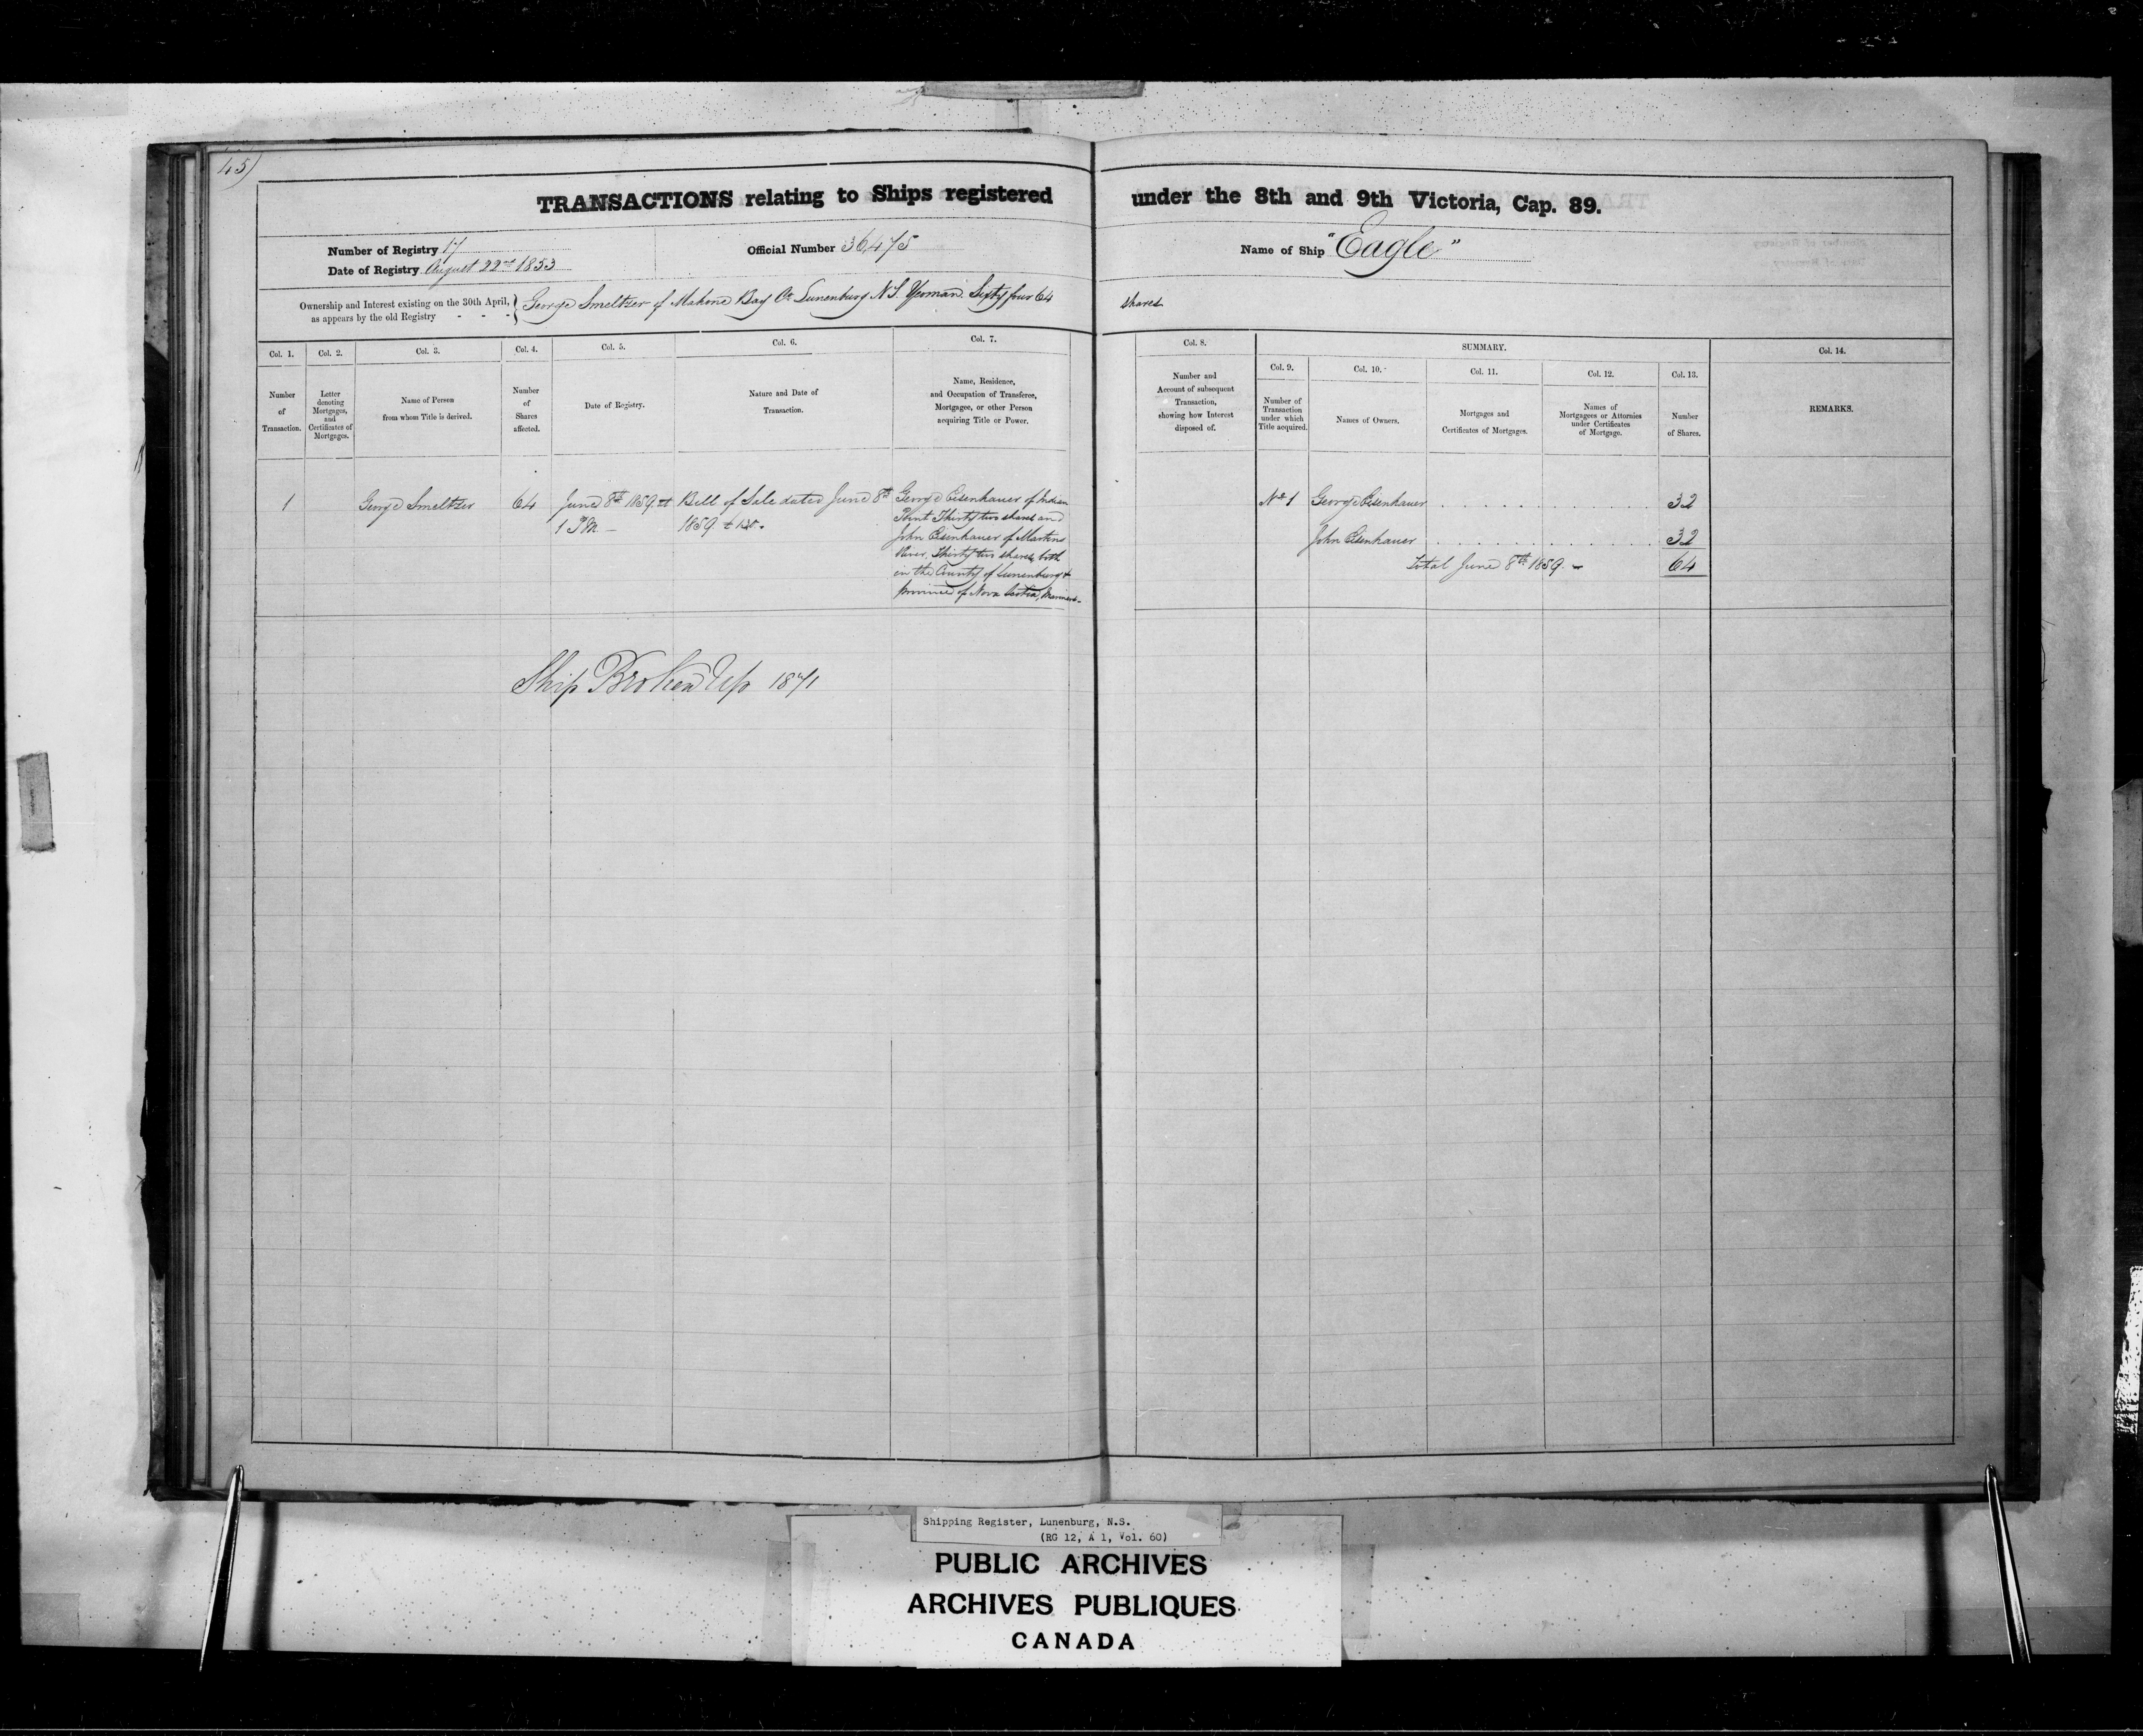 45)
TRANSACTIONS relating to Ships registered under the 8th and 9th Victoria, Cap. 89.
Number of Registry 17
Date of Registry August 22nd 1853
Official Number 36,475
Name of Ship "Eagle"
Ownership and Interest existing on the 30th April,
as appears by the old Registry - - -
George Smeltzer of Mahone Bay Co Lunenburg N.S. Yeoman. Sixty four 64 shares
Col. 1. Col. 2. Col. 3. Col. 4. Col. 5. Col. 6. Col. 7. Col. 8. SUMMARY. Col. 14.
Col. 9. Col. 10. Col. 11. Col. 12. Col. 13.
Number
of
Transaction.
Letter
denoting
Mortgages,
and
Certificates of
Mortgages.
Name of Person
from whom Title is derived.
Number
of
Shares
affected.
Date of Registry.
Nature and Date of
Transaction.
Name, Residence,
and Occupation of Transferee,
Mortgagee, or other Person
acquiring Title or Power.
Number and
Account of subsequent
Transaction,
showing how Interest
disposed of.
Number of
Transaction
under which
Title acquired.
Names of Owners.
Mortgages and
Certificates of Mortgages.
Names of
Mortgagees or Attornies
under Certificates
of Mortgage.
Number
of Shares.
REMARKS.
1
George Smeltzer
64
June 8th 1859 at
1 PM
Bill of Sale dated June 8th
1859
George Eisenhauer of Indian
Point Thirty two shares and
John Eisenhauer of Martins
River, Thirty two shares, both
in the County of Lunenburg &
province of Nova Scotia, Mariners
No 1 George Eisenhauer 32
John Eisenhauer 32
Total June 8th 1859. 64
Ship Broken Up 1871
Shipping Register, Lunenburg, N.S.
(RG 12, A 1, Vol. 60)
PUBLIC ARCHIVES
ARCHIVES PUBLIQUES
CANADA